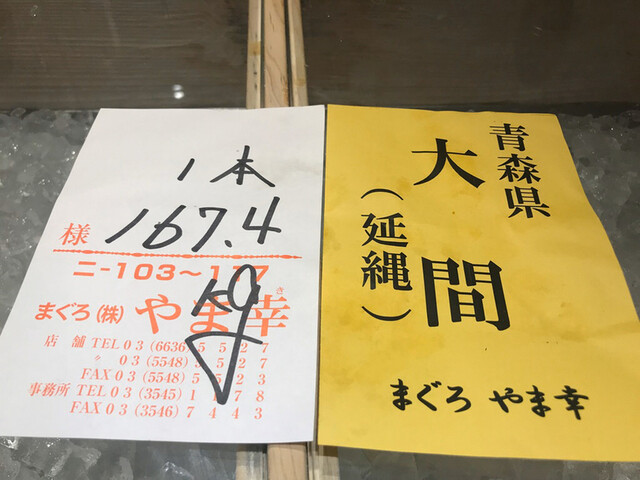 1本
様 167.4
kg
ニ-103〜117
まぐろ(株)やま幸
き
店 舗 TEL 03 (6636) 5 5 2 7
〃 03 (5548) 5 5 2 7
FAX 03 (5548) 5 5 2 3
事務所 TEL 03 (3545) 1 1 7 8
FAX 03 (3546) 7 4 4 3
青森県
大間
(延縄)
まぐろ やま幸